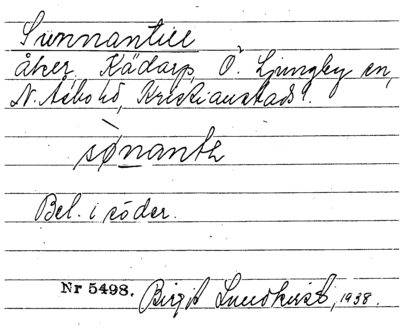 Sunnantill
åker, Kädarp, Ö. Ljungby sn,
N. Åsbo hd, Kristianstads l.
sø̀nanté
Bel. i söder.
Nr 5498. Birgit Lundkvist, 1938.